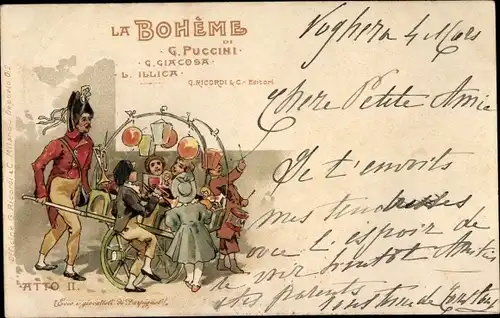 LA BOHÈME
DI
G. PUCCINI
G. GIACOSA
L. ILLICA
G. RICORDI & C. - Editori
Officine G. Ricordi & C. Milano
ATTO II.
(Ecco i giocattoli di Parpignol!)
Voghera 4 Mars
Chere Petite Amie
Je t'envoie
mes tendresses
avec l'espoir de
te voir bientôt
tes parents